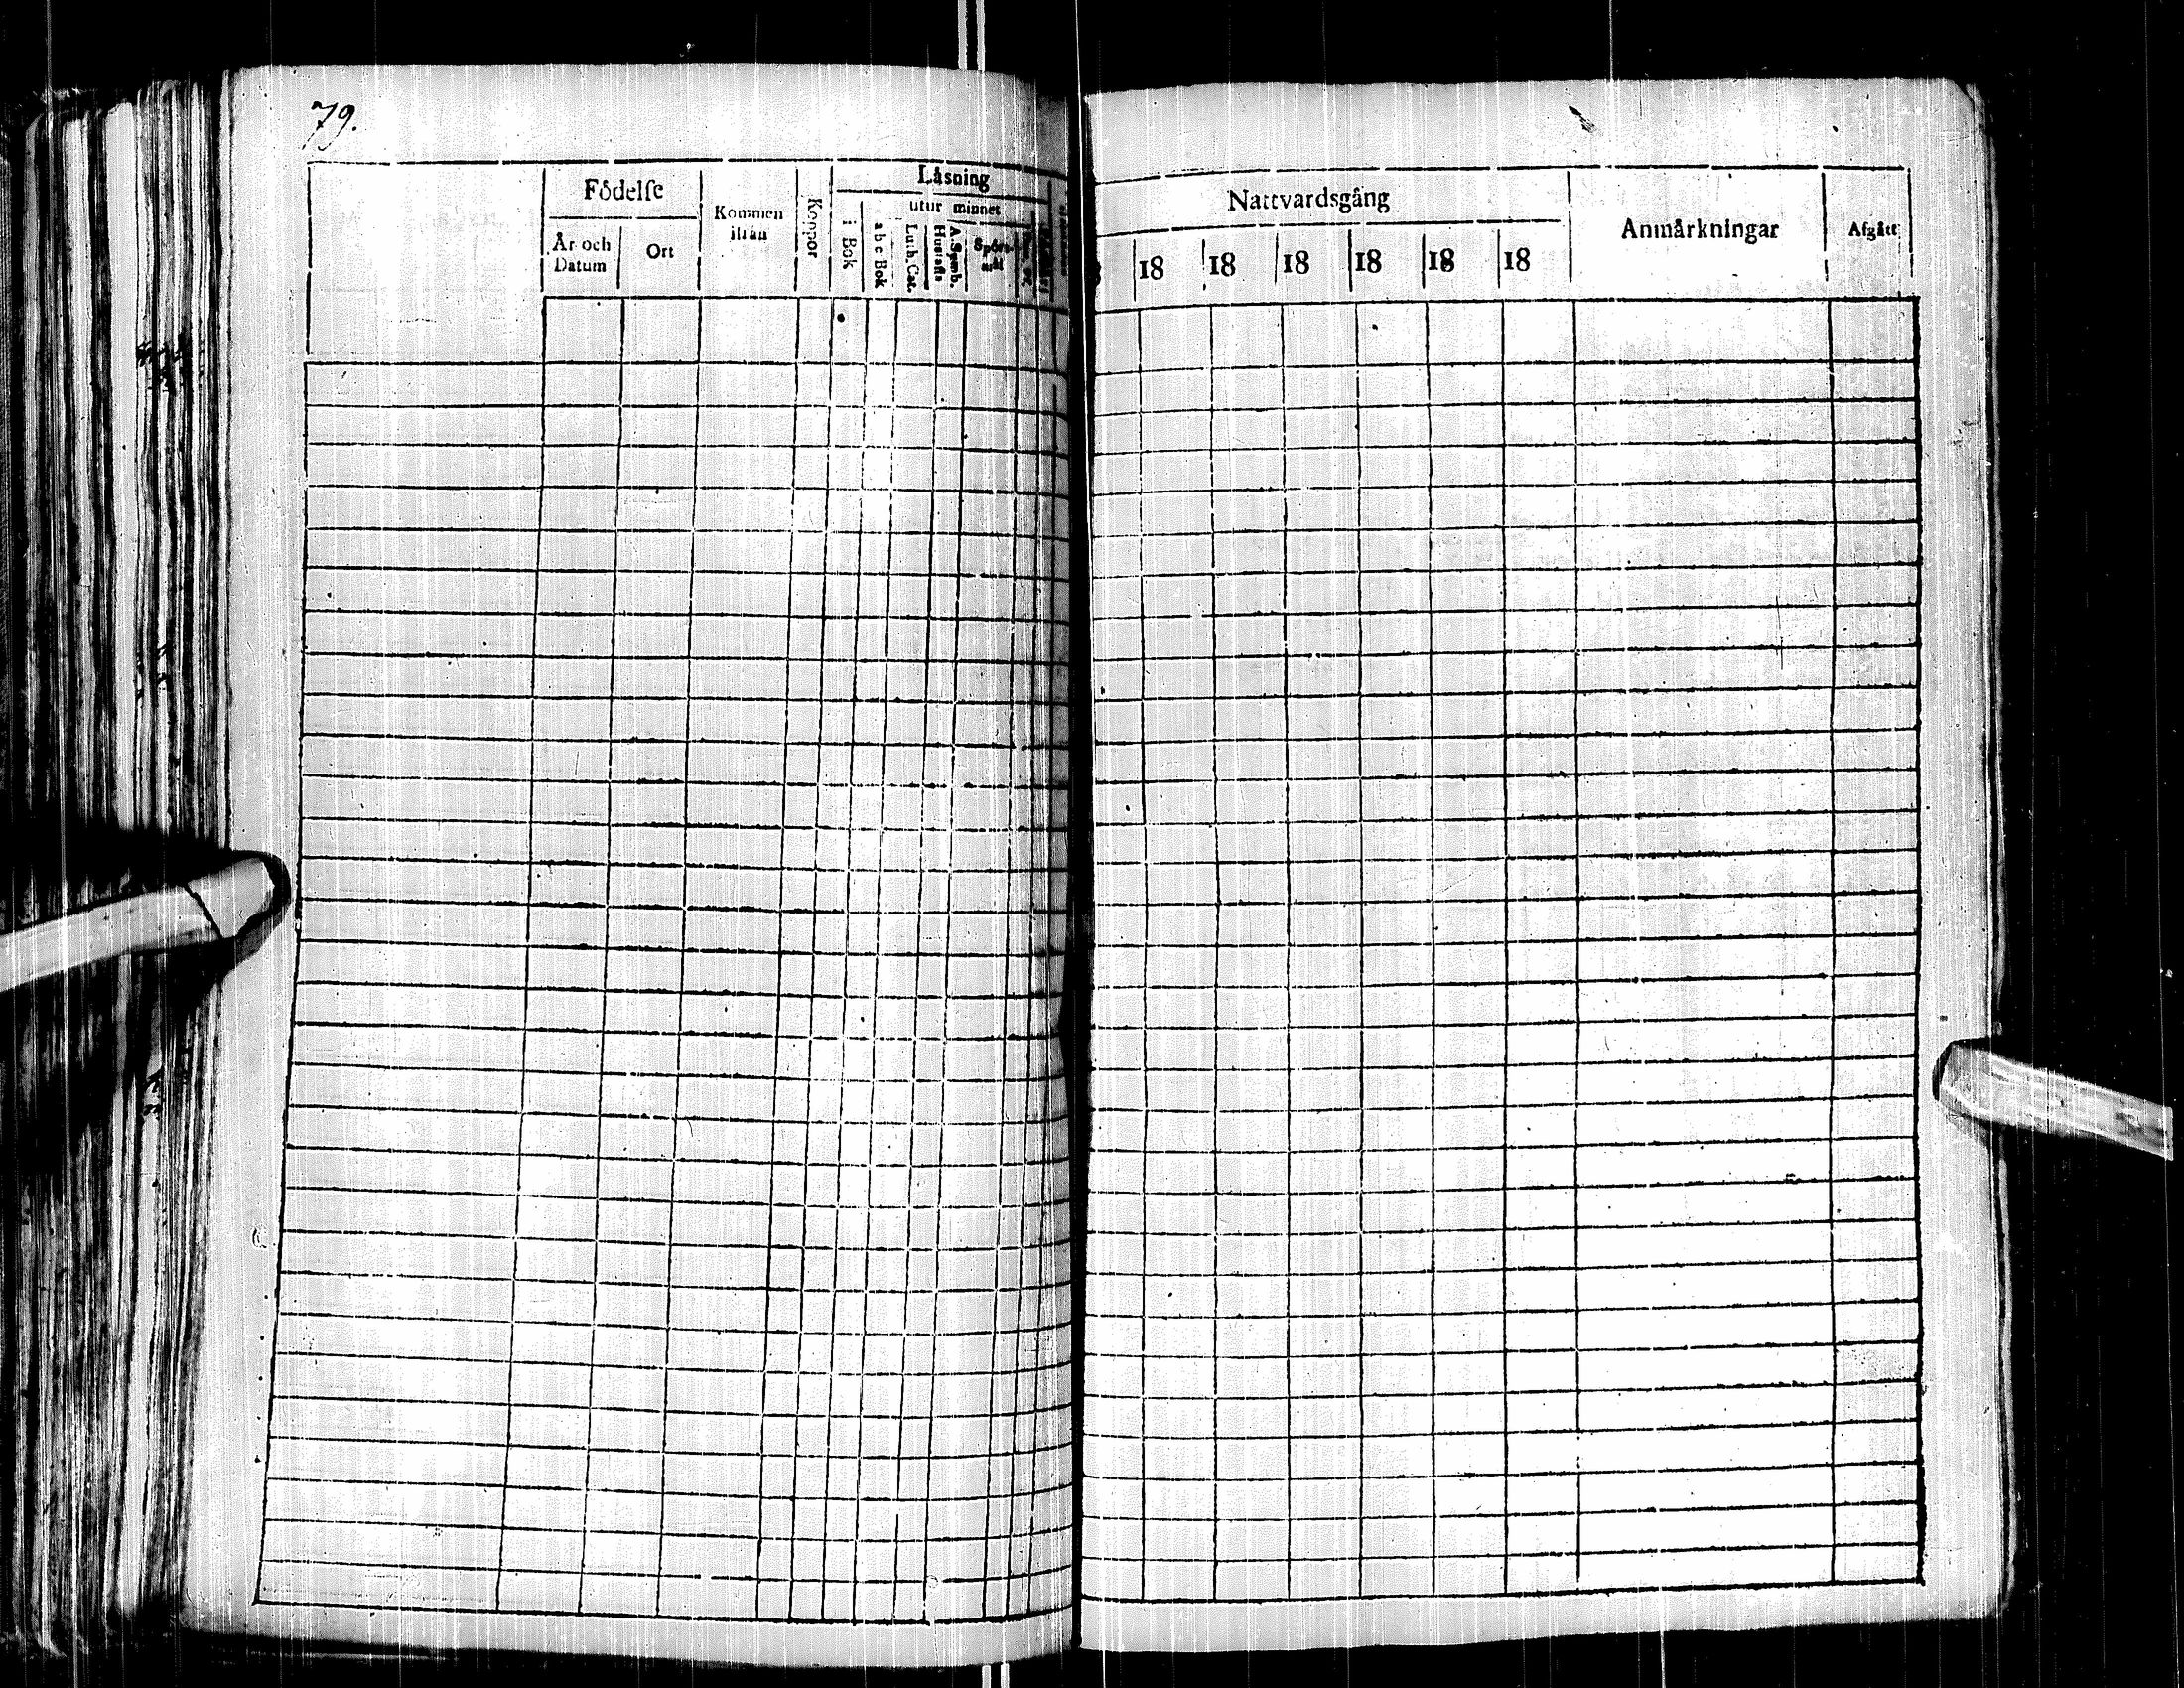 79.
Födelse
År och Datum
Ort
Kommen ifrån
Koppor
Låsning
i Bok
utur minnet
a b c Bok
Luth. Cat.
Hustafla
A. Symb.
Spörsmål
Nattvardsgång
18 18 18 18 18 18
Anmårkningar
Afgått